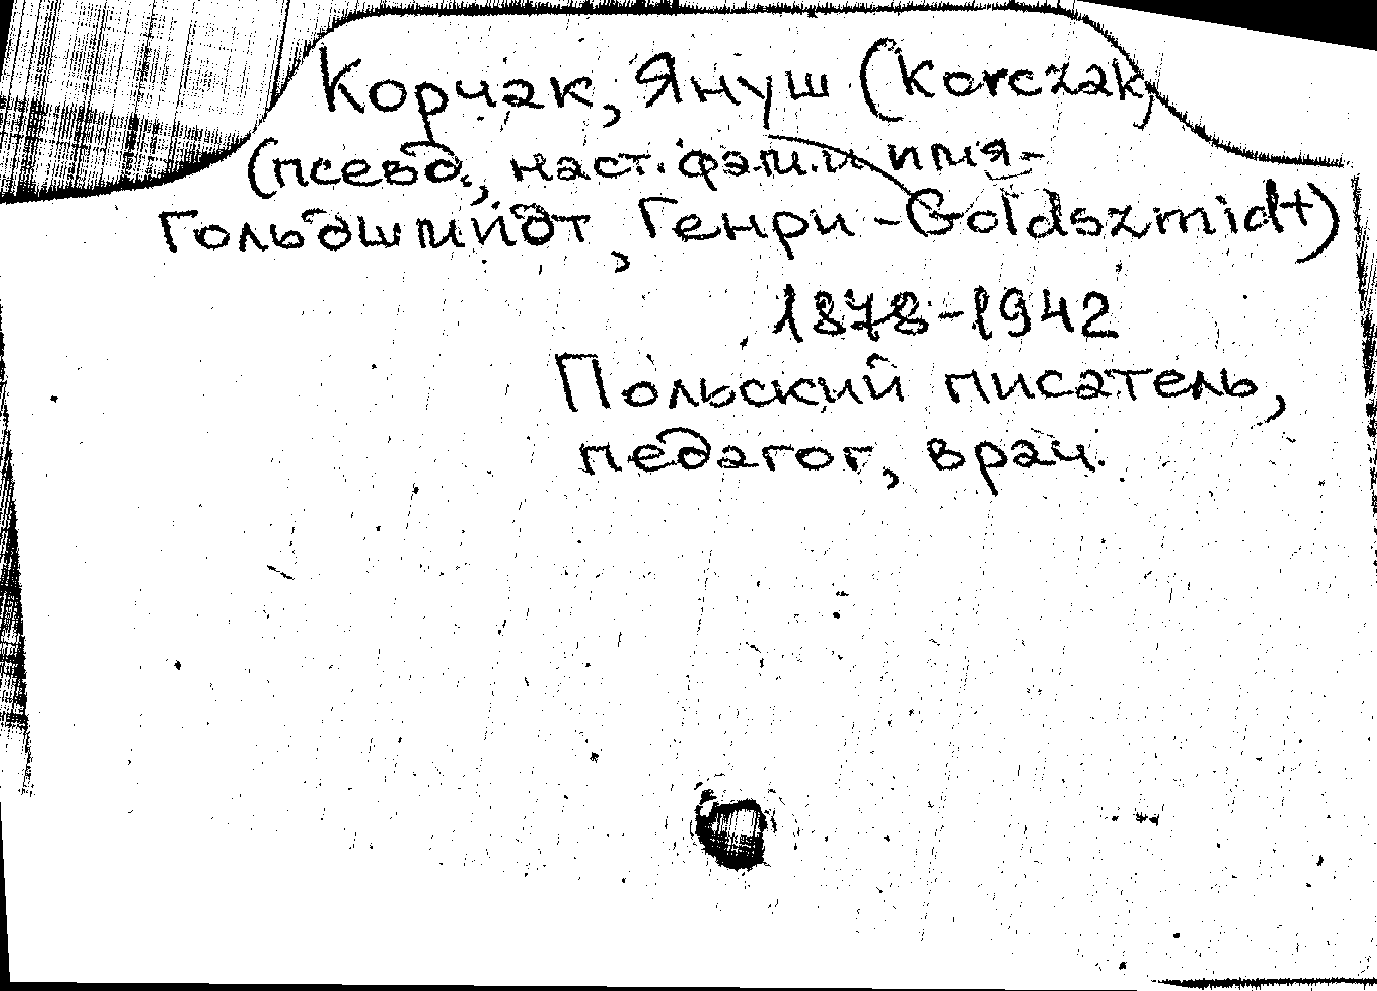 Корчак, Януш (Korczak)
(псевд., наст. фам. и имя-
Гольдшмидт, Генри - Goldszmidt)
1878-1942
Польский писатель,
педагог, врач.